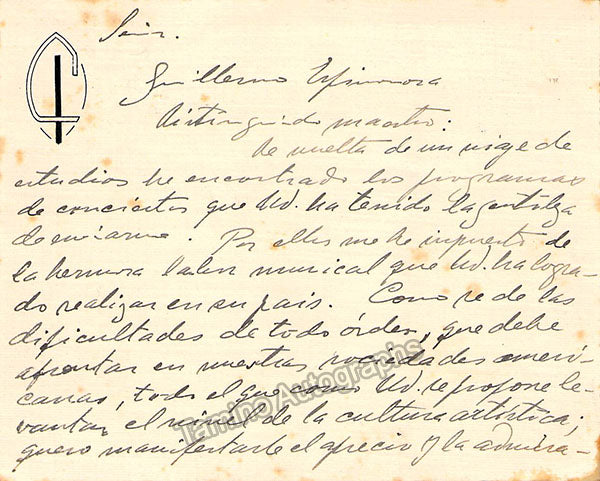 Señor.
Guillermo Espinosa
distinguido maestro:
De vuelta de un viaje de
estudios he encontrado los programas
de conciertos que Ud. ha tenido la gentileza
de enviarme. Por ellos me he impuesto de
la hermosa labor musical que Ud. ha logra-
do realizar en su pais. Como se de las
dificultades de todo órden, que debe
afrontar en nuestras sociedades ameri-
canas, todo el que como Ud. se propone le-
vantar el nivel de la cultura artística;
quero manifestarle el aprecio y la admira-
Tamino Autographs